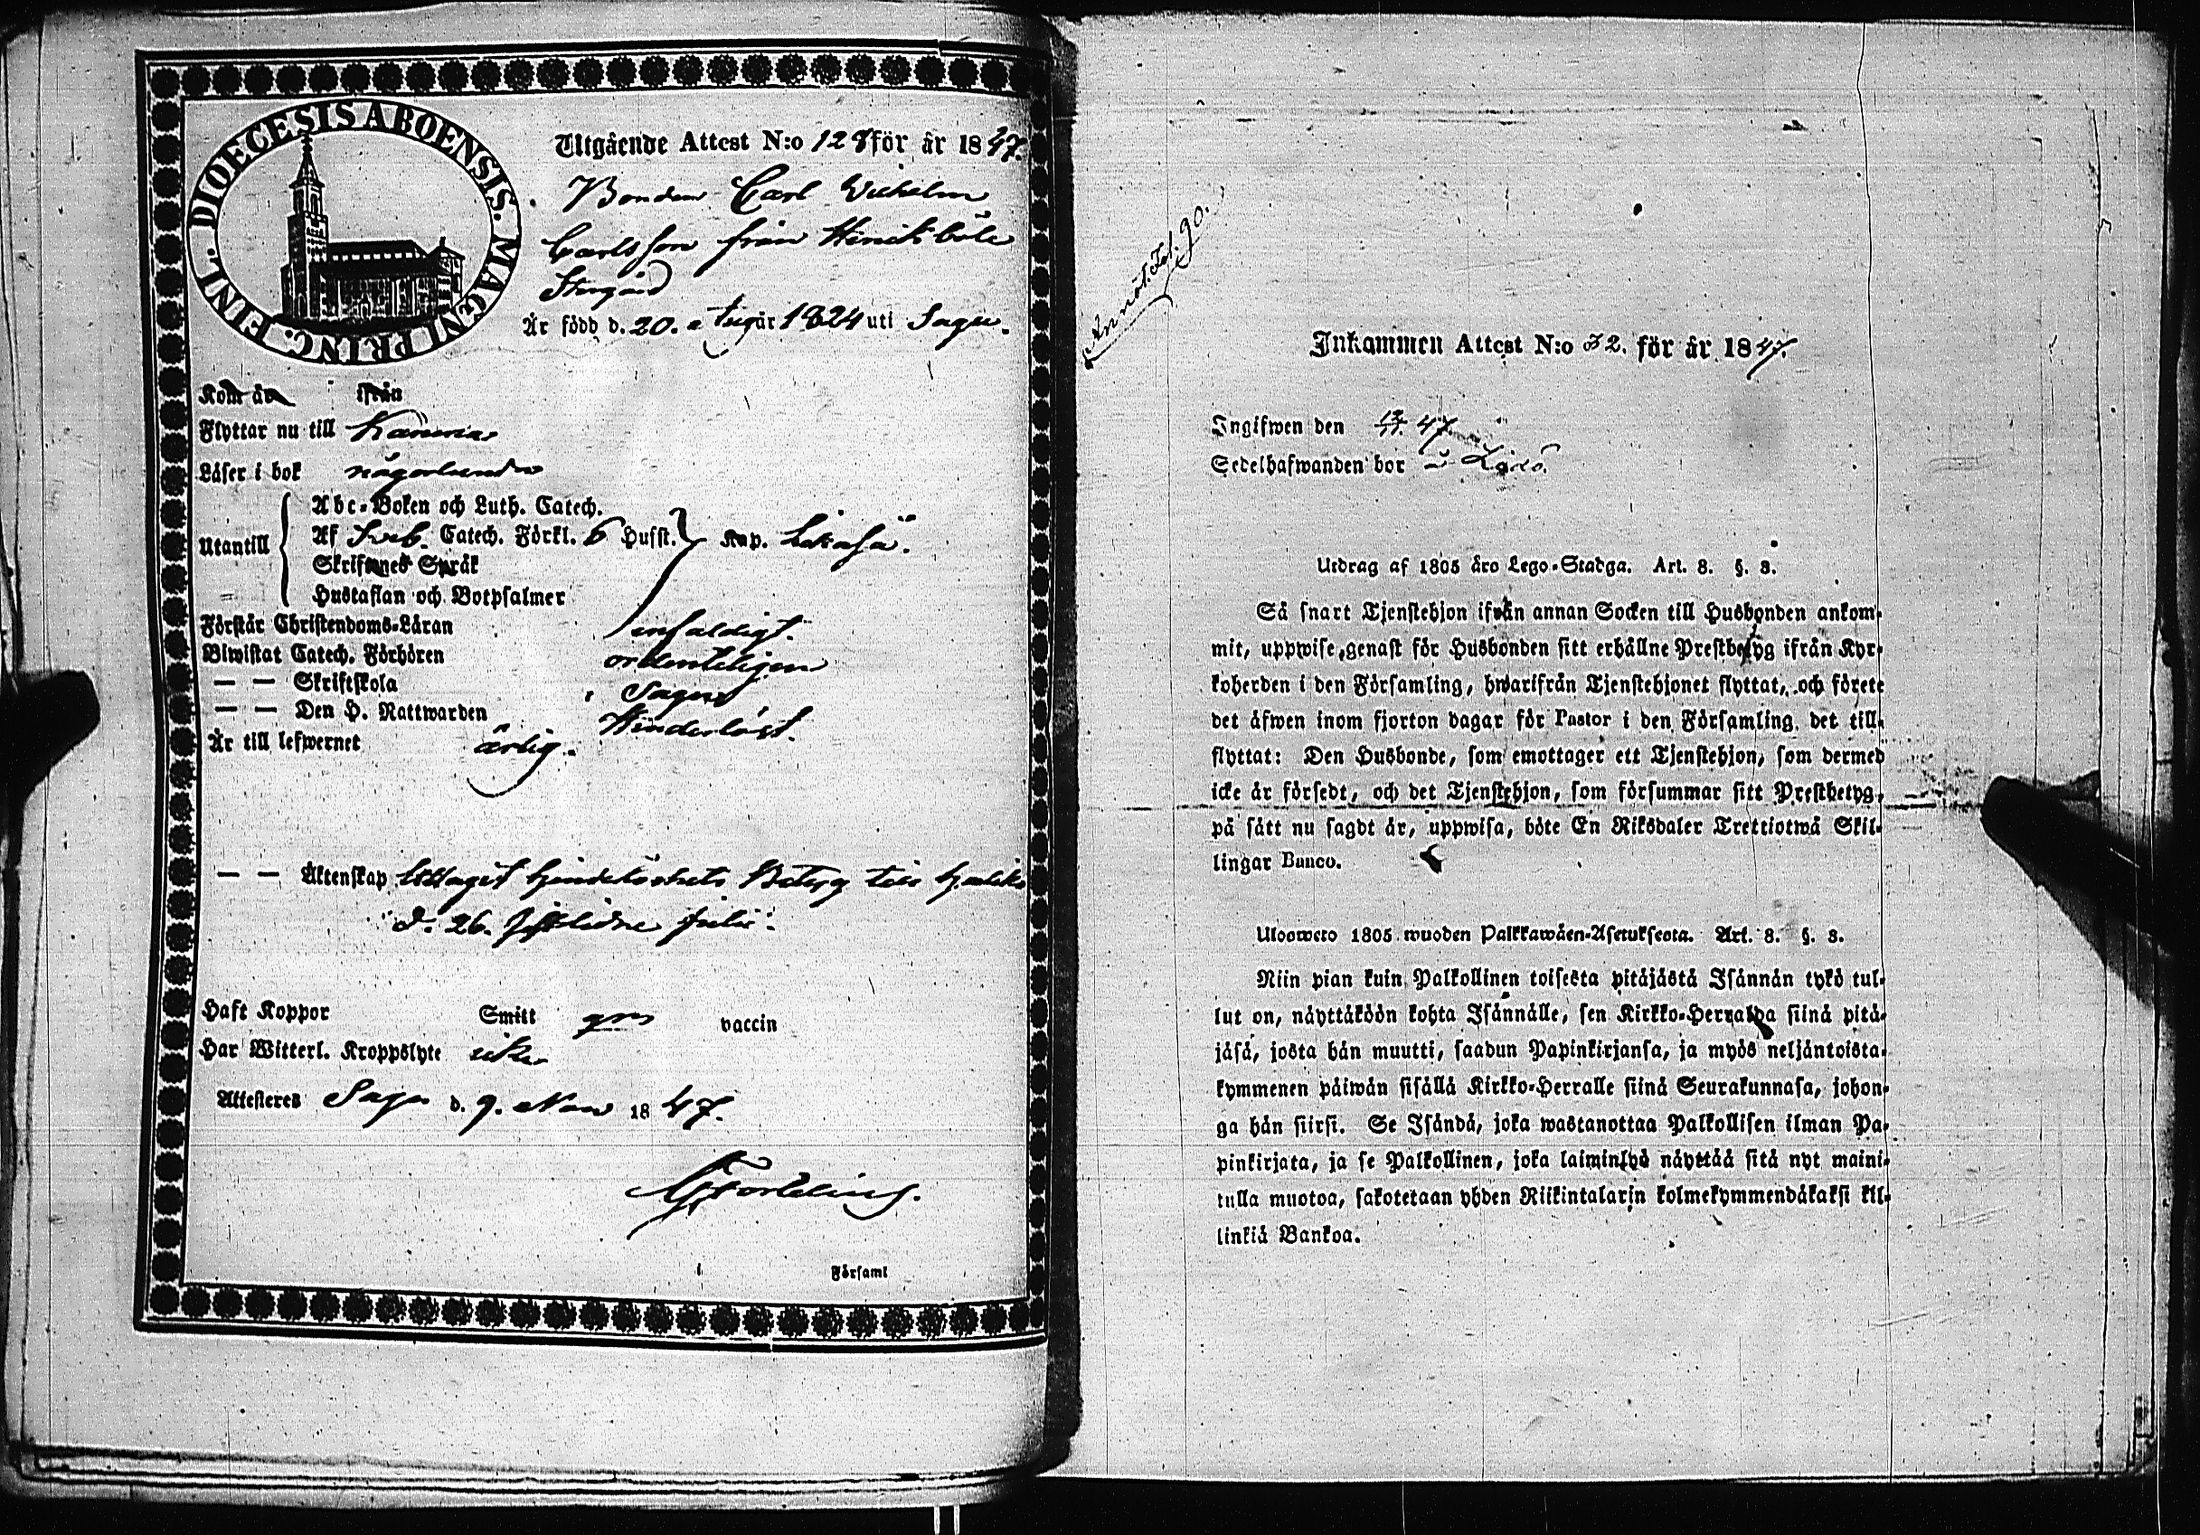 DIOECESIS ABOENSIS. MAGNI PRINC. FINL.
Utgående Attest N:o 128 för år 1847.
Bonden Carl Wilhelm
Carlsson från Hinriksböle
Storgård
Är född d. 20. Aug år 1824 uti Sagu.
Kom år ifrån
Flyttar nu till Karuna
Läser i bok någorlunda
Utantill
Abc-Boken och Luth. Catech.
Af Sveb. Catech. Förkl. 6 Hufst. Kap.
Skriftenes Språk
Hustaflan och Botpsalmer
Förstår Christendoms-Läran enfaldigt.
Biwistat Catech. Förhören ordenteligen
— — Skriftskola i Sagu
— — Den H. Nattwarden Hinderlöst.
Är till lefwernet ärlig.
— — Äktenskap Uttagit hinderlöshets Betyg till
d. 26. sistlidne Julii.
Haft Koppor Smitt gm vaccin
Har Witterl. Kroppslyte icke
Attesteres Sagu d. 9. Nov 1847.
i Församl
Annot. Fol. 90.
Inkommen Attest N:o 32. för år 1847.
Ingifwen den 12/11 47
Sedelhafwanden bor i
Utdrag af 1805 års Lego-Stadga. Art. 8. §. 3.
Så snart Tjenstehjon ifrån annan Socken till Husbonden ankom-
mit, uppwise genast för Husbonden sitt erhållne Prestbetyg ifrån Kyr-
koherden i den Församling, hwarifrån Tjenstehjonet flyttat, och förete
det äfwen inom fjorton dagar för Pastor i den Församling, det till-
flyttat: Den Husbonde, som emottager ett Tjenstehjon, som dermed
icke är försedt, och det Tjenstehjon, som försummar sitt Prestbetyg,
på sätt nu sagdt är, uppwisa, böte En Riksdaler Trettiotwå Skil-
lingar Banco.
Ulosweto 1805 wuoden Palkkawäen-Asetuksesta. Art. 8. §. 3.
Niin pian kuin Palkollinen toisesta pitäjästä Isännän tykö tul-
lut on, näyttäköön kohta Isännälle, sen Kirkko-Herralda siinä pitä-
jäsä, josta hän muutti, saadun Papinkirjansa, ja myös neljäntoista-
kymmenen päiwän sisällä Kirkko-Herralle siinä Seurakunnasa, johon-
ga hän siirsi. Se Isändä, joka wastanottaa Palkollisen ilman Pa-
pinkirjata, ja se Palkollinen, joka laiminlyö näyttää sitä nyt maini-
tulla muotoa, sakotetaan yhden Riikintalarin kolmekymmendäkaksi kil-
linkiä Bankoa.